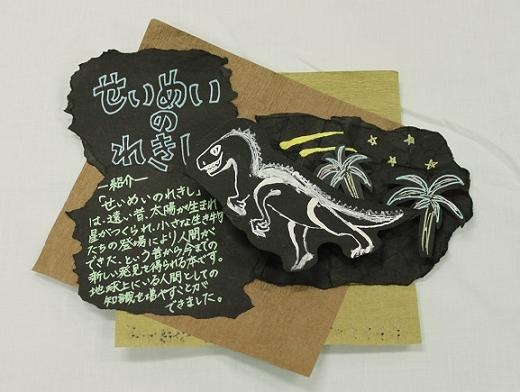 せいめい
の
れきし
―紹介―
「せいめいのれきし」
は、遠い昔、太陽が生まれ
星がつくられ、小さな生き物
たちの登場により人間が
できた、という昔から今までの
新しい発見を得られる本です。
地球上にいる人間としての
知識を増やすことが
できました。